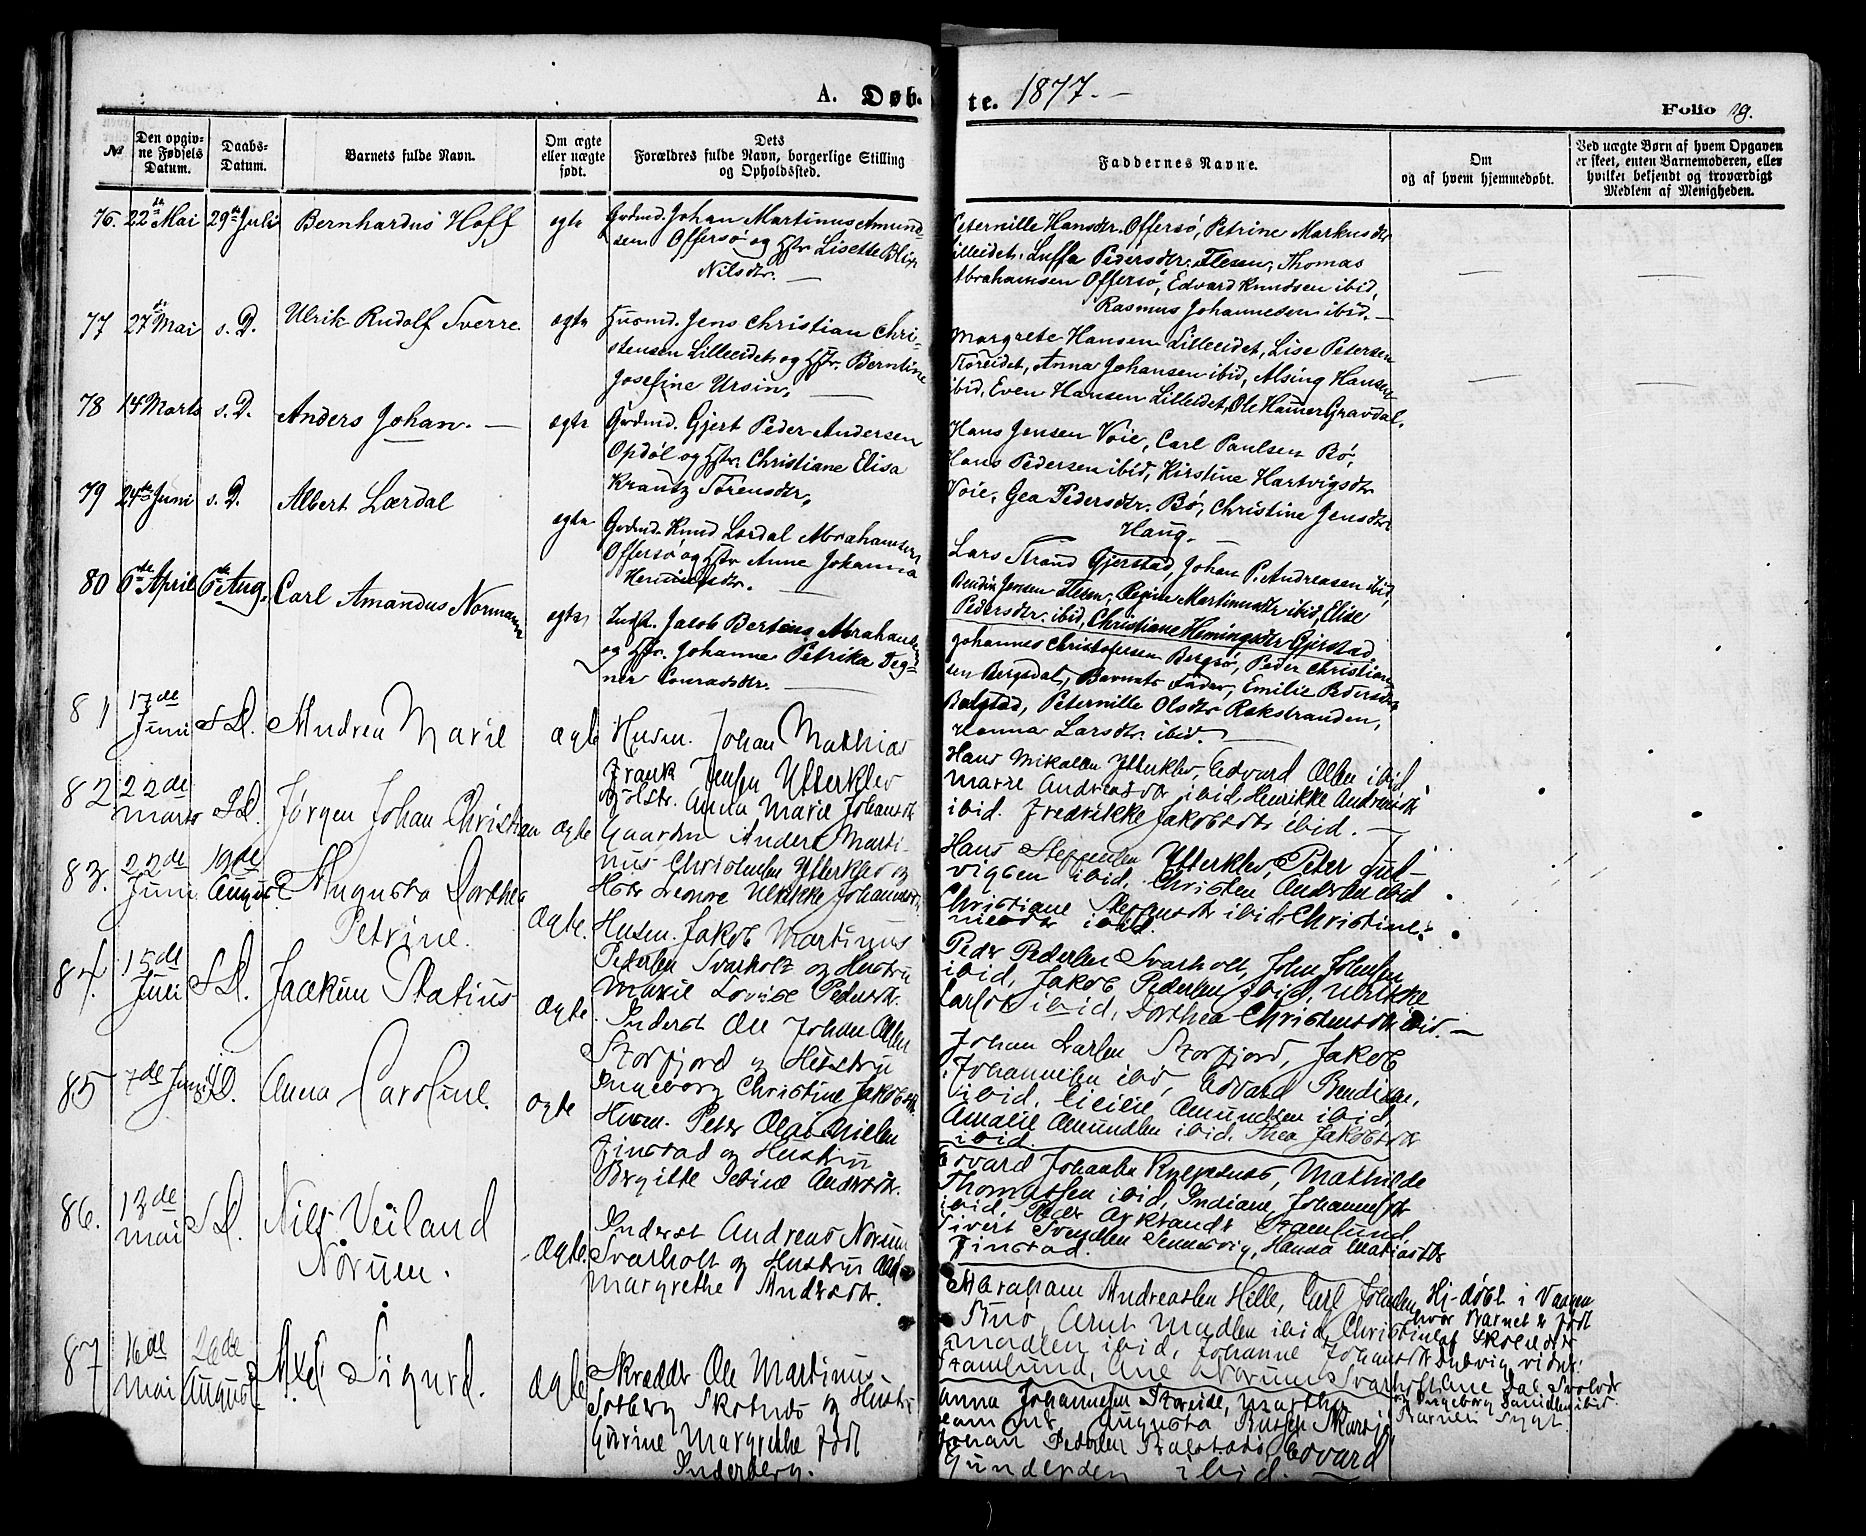 A. Døb-
te. 1877.-
Folio 19.
№
Den opgiv-
ne Fødsels
Datum.
Daabs-
Datum.
Barnets fulde Navn.
Om ægte
eller uægte
født.
Dets
Forældres fulde Navn, borgerlige Stilling
og Opholdssted.
Faddernes Navne.
Om
og af hvem hjemmedøbt.
Ved uægte Børn af hvem Opgaven
er skeet, enten Barnemoderen, eller
hvilket bekjendt og troværdigt
Medlem af Menigheden.
76. 22de Mai 29de Juli Bernhardus Hoff ægte
Grdmd. Johan Martinus Amund-
sen Offersø og Hstr. Lisette Blix
Nilsdtr.
Peternille Hansdtr. Offersø, Petrine Markusdtr
Lilleeidet, Luffa Pedersdtr. Flesen, Thomas
Abrahamsen Offersø, Edvard Knudsen ibid,
Rasmus Johannesen ibid.
77 27de Mai s. D. Ulrik Rudolf Sverre ægte
Husmd. Jens Christian Chri-
stensen Lilleeidet og Hstr. Berntine
Josefine Ursin.
Margrete Hansen Lilleeidet, Lise Petersen
Storeidet, Anna Johansen ibid, Alsing Hansen
ibid, Even Hansen Lilleeidet, Ole Hamer Gravdal.
78 14 Marts s. D. Anders Johan. ægte
Grdmd. Gjert Peder Andersen
Opdøl og Hstr. Christiane Elisa
Krantz Sørensdtr.
Hans Jensen Voie, Carl Paulsen Bø,
Hans Pedersen ibid, Kirstine Hartvigsdtr
Voie, Gea Pedersdtr. Bø, Christine Jensdtr
Haug.
79 24de Juni s. D. Albert Lærdal ægte
Grdmd. Knud Lærdal Abrahamsen
Offersø og Hstr Anne Johanna
Hemingsdtr.
Lars Strand Gjerstad, Johan P. Andreasen ibid,
Bendix Jensen Flesen, Regine Martinusdtr ibid, Elise
Pedersdtr. ibid, Christiane Hemingsdtr Gjerstad
80 6de April 6te Aug. Carl Amandus Normann ægte
Indst. Jacob Berteus Abrahamsen
og Hstr. Johanne Petrika Teg-
ner Conradsdtr.
Johannes Christofersen Bergsø, Peder Christian-
sen Bergsdal, Barnets Fader, Emilie Pedersdtr
Balstad, Peternille Olsdtr Rekstranden,
Hanna Larsdtr ibid.
81 17de
Juni S D. Andrea Marie ægte
Husm. Johan Mathias
Frank Jensen Ytterklev
og Hstr. Anna Marie Johansdtr
Hans Mikalsen Ytterklev, Edvard Olsen ibid,
Marie Andreasdtr ibid, Henrikke Andreasdtr
ibid. Fredrikke Jakobsdtr ibid.
82 22de
Marts S D. Jørgen Johan Christian ægte
Gaardm. Anders Marti-
nus Christensen Ytterklev og
Hstr Leonore Ulrikke Johannesdtr.
Hans Steffensen Ytterklev, Peter Lud-
vigsen ibid, Christen Andersen ibid
Christiane Steffensdtr ibid, Christine
ibid.
83. 22de
Juni 19de
August Augusta Dorthea
Petrine. ægte.
Husm. Jakob Martinus
Pedersen Svarholt og Hustru
Marie Lovise Pedersdtr.
Peder Pedersen Svarholt, John Johnsen
ibid, Jakob Pedersen ibid, Ulrikke
Carlsdtr ibid, Dorthea Christensdtr ibid.
84. 15de
Juli S D. Jaakim Statius ægte
Inderst Ole Johan Olsen
Storfjord og Hustru
Ingeborg Christine Jakobsdtr.
Johan Larsen Storfjord, Jakob
Johannesen ibid, Edvard Bendixsen,
ibid, Cicilie Amundsen ibid,
Amalie Amundsen ibid, Thea Jakobsdtr
ibid.
85 7de Juni S D. Anna Caroline. ægte
Husm. Peter Olai Nielsen
Finstad og Hustru
Birgitte Sebine Andersdtr.
Edvard Johansen, Mathilde
Thomassen ibid, Indiane Johannesdtr
ibid, Peder Stamsund,
Sivert Svendsen Sennesvig, Hanna Matiasdtr
Finstad.
86. 13de
Mai S D. Nils Veiland
Noruem. Ægte.
Inderst Andreas Noruem
Svarholt og Hustru
Margrethe Andersdtr.
Abraham Andreassen Hille, Carl Johnsen
Arnt Madsen ibid, Christine
Madsen ibid, Johanne Johansdtr
Stamsund, Ane Noruem Svarholt
Hj-døbt i Vaagen
hvor Barnet er født
87 16de
Mai 26de
August Axel Sigurd. ægte
Skrædder Ole Martinus
Solberg Skotnes og Hustru
Gurine Margrethe født
Inderberg.
Anna Johannesen Storeide, Martha
Augusta
Johan Pedersen Balstad, Edvard
Gundersen ibid.